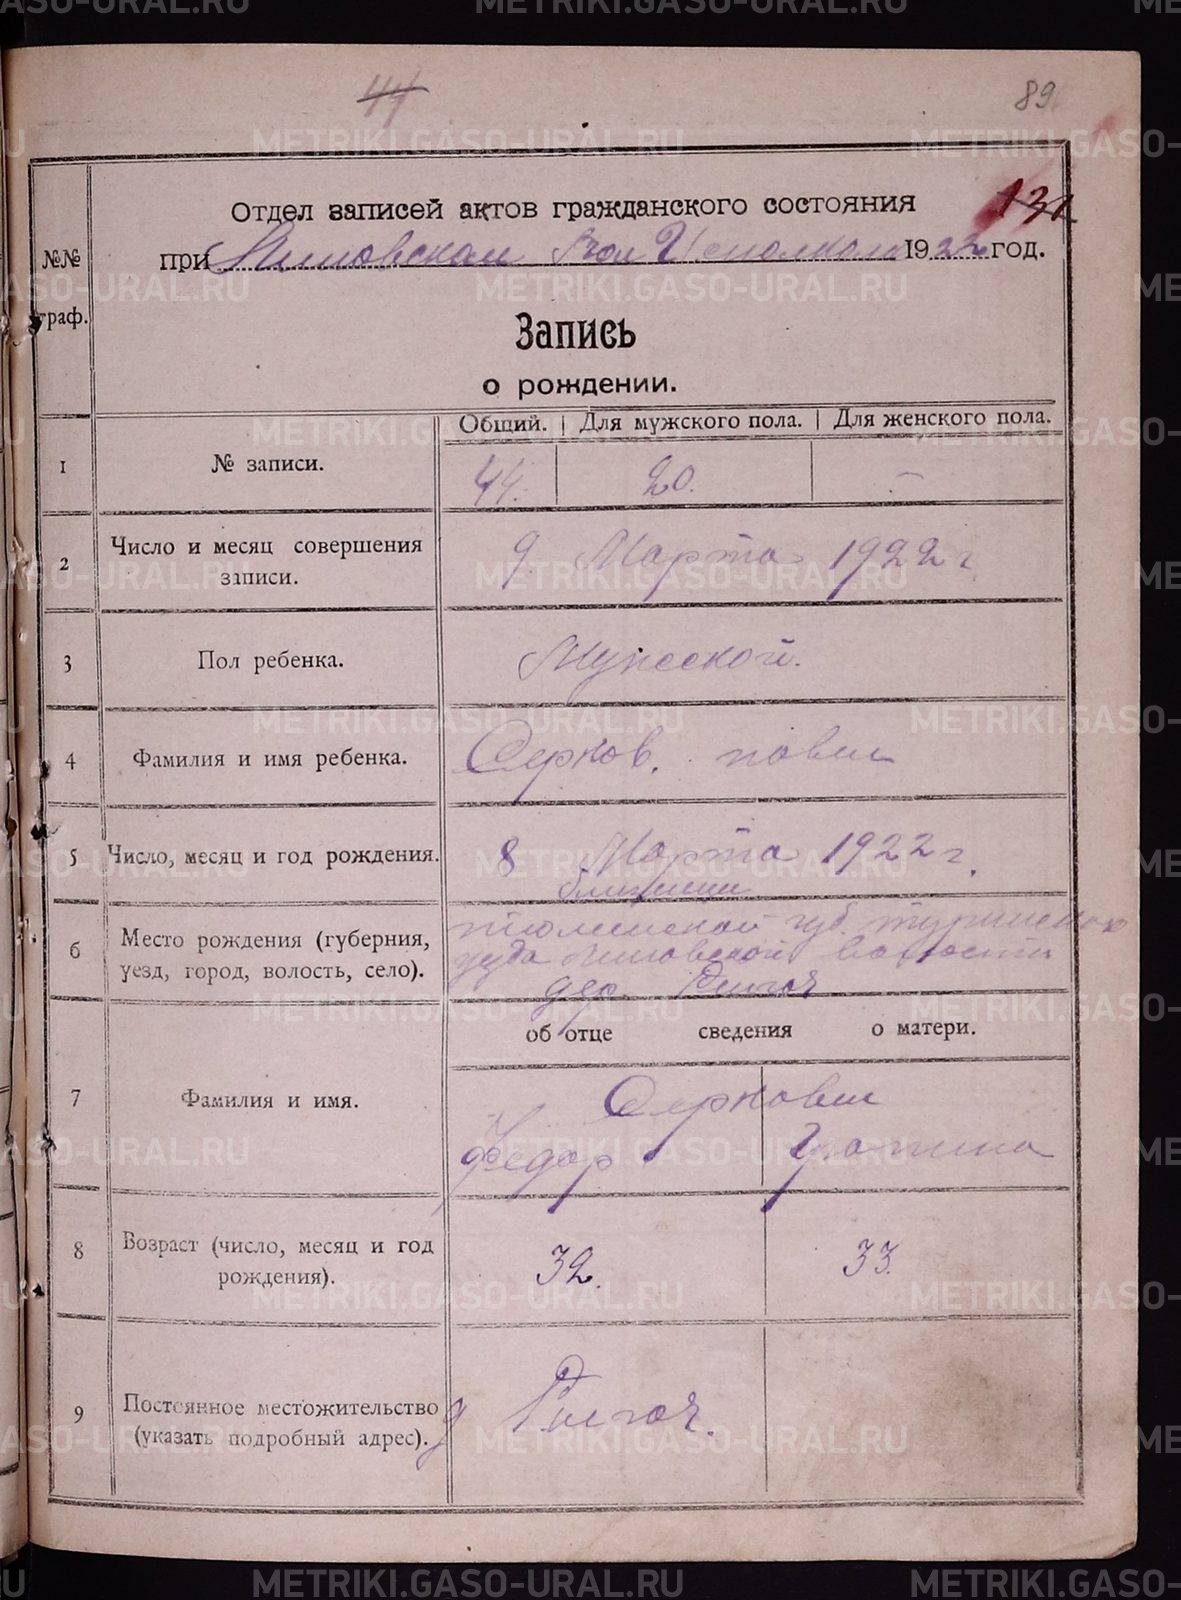 44
89
131
Отдел записей актов гражданского состояния
при Липовском Вол Исполкоме 1922 год.
№№
граф.
Запись
о рождении.
Общий. | Для мужского пола. | Для женского пола.
1 № записи. 44. 20. —
2 Число и месяц совершения
записи. 9 Марта 1922 г
3 Пол ребенка. Мужской.
4 Фамилия и имя ребенка. Серков. павел
5 Число, месяц и год рождения. 8 Марта 1922 г.
близнецы
6 Место рождения (губерния,
уезд, город, волость, село).
тюменской губ. туринского
уезда Липовской волости
дер.
об отце сведения о матери.
7 Фамилия и имя. Серковы
Федор
8 Возраст (число, месяц и год
рождения). 32. 33.
9 Постоянное местожительство
(указать подробный адрес). д
METRIKI.GASO-URAL.RU